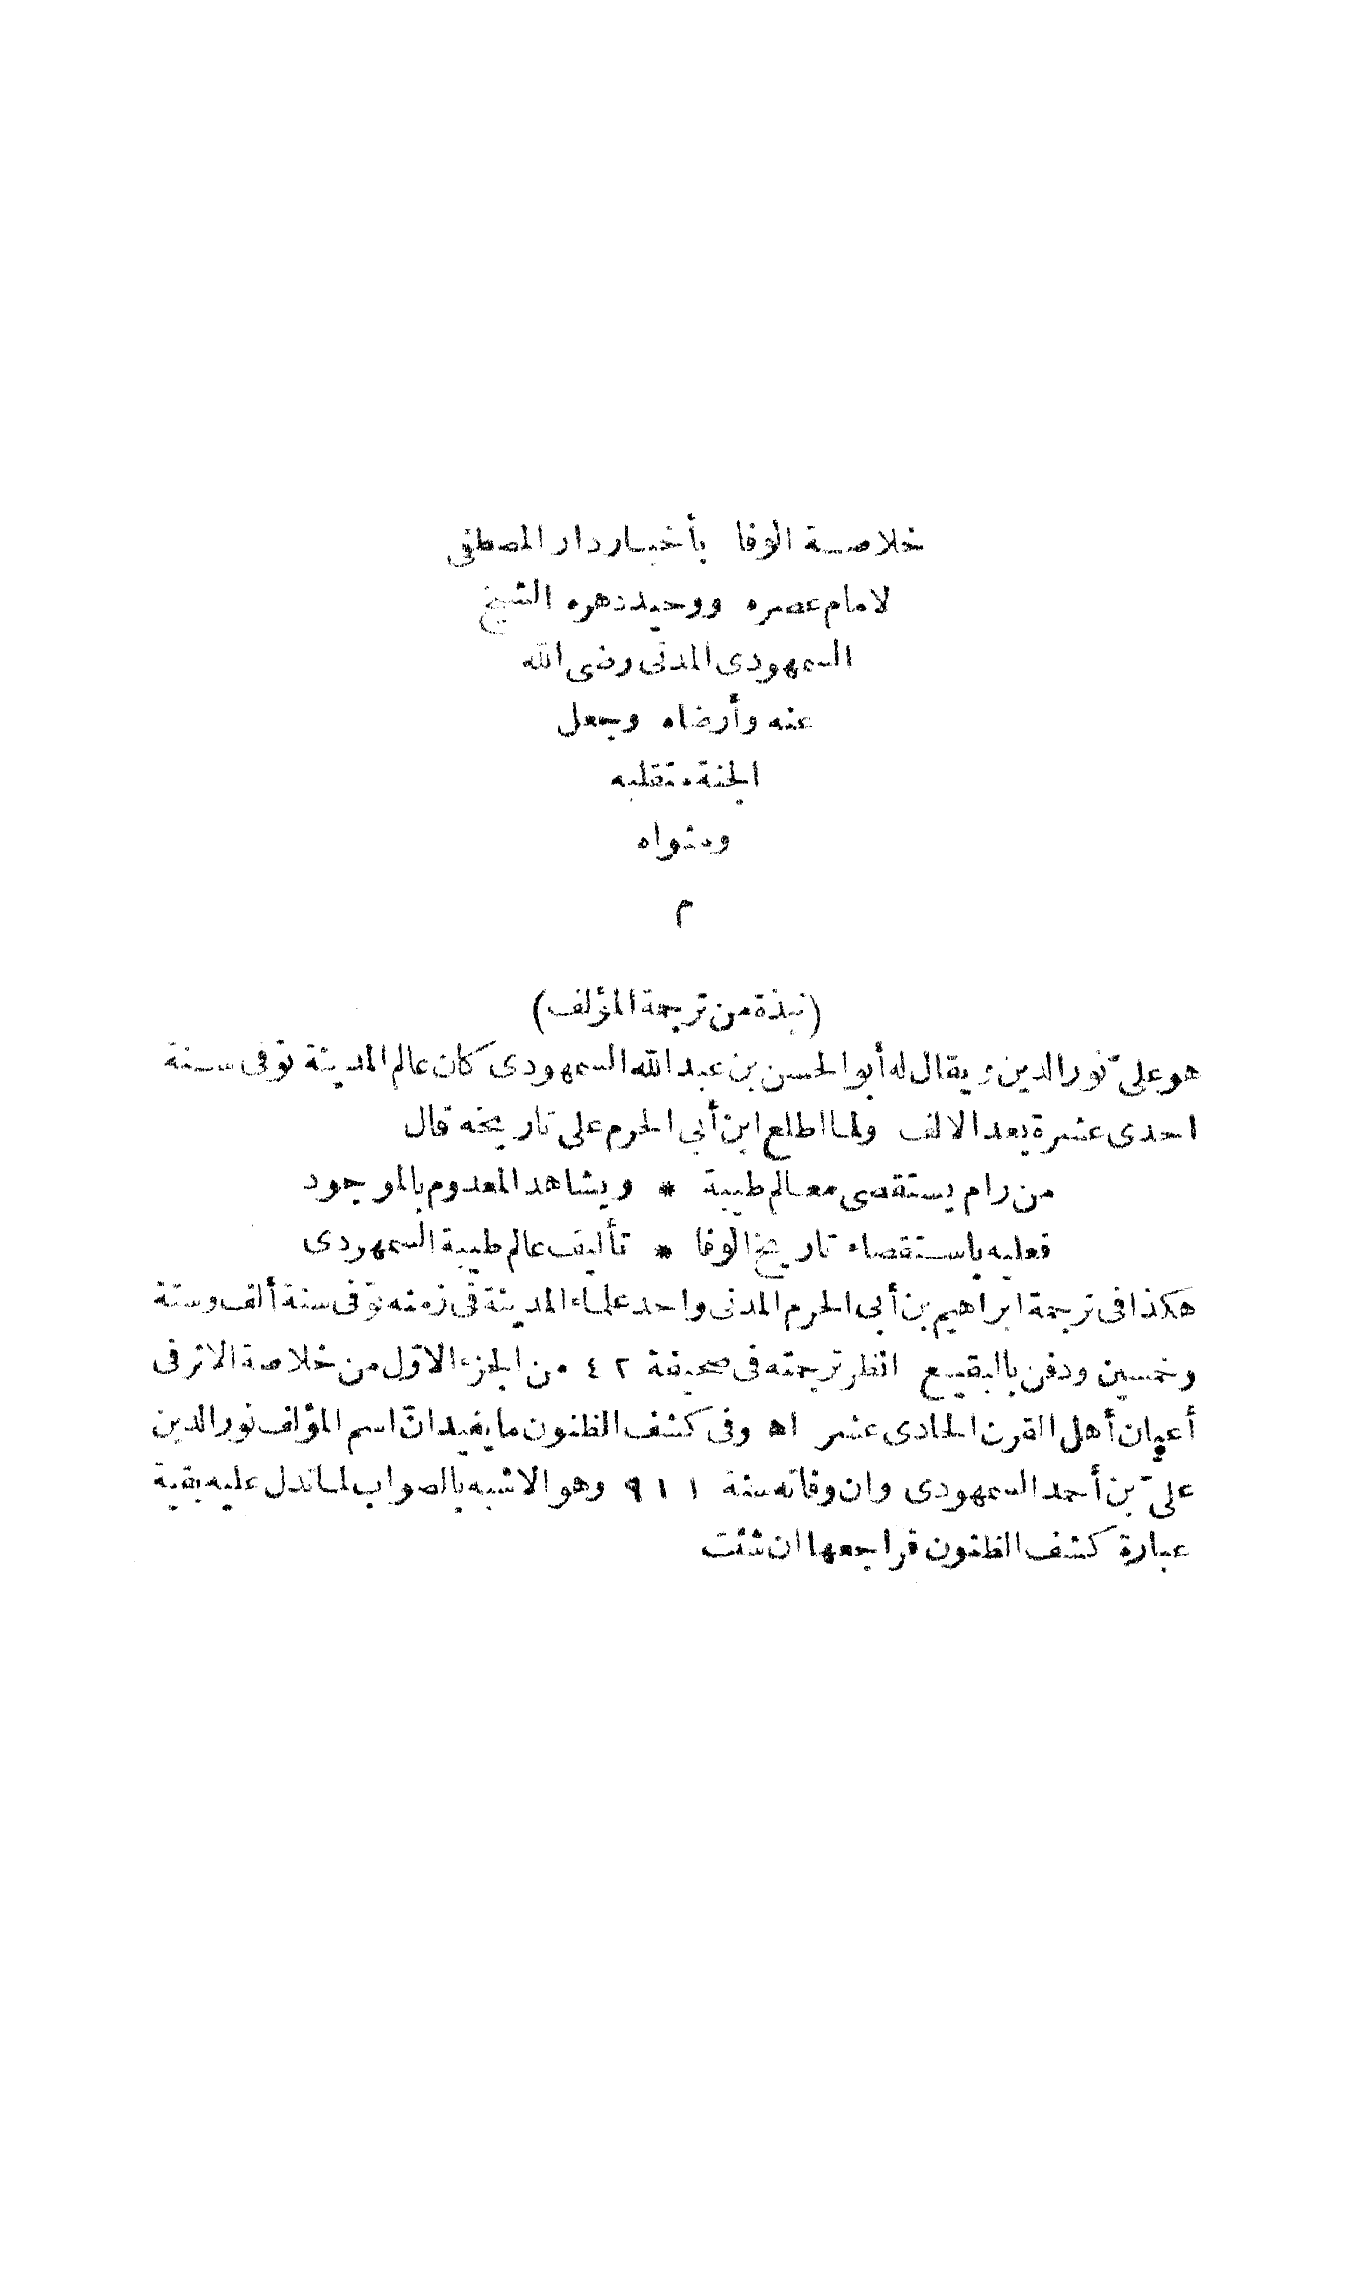 خلاصة الوفا بأخبار دار المصطفى
لامام عصره ووحيد دهره الشيخ
السمهودى المدنى رضى الله
عنه وأرضاه وجعل
الجنة متقلبه
ومثواه
م
(نبذة من ترجمة المؤلف)
هو علىّ نور الدين ويقال له أبو الحسن بن عبد الله السمهودى كان عالم المدينة توفى سنة
احدى عشرة بعد الالف ولما اطلع ابن أبى الحرم على تاريخه قال
من رام يستقصى معالم طيبة * ويشاهد المعدوم بالموجود
فعليه باستقصاء تاريخ الوفا * تأليف عالم طيبة السمهودى
هكذا فى ترجمة ابراهيم بن أبى الحرم المدنى واحد علماء المدينة فى زمنه توّفى سنة ألف وستة
وخمسين ودفن بالبقيع انظر ترجمته فى صحيفة ٤٢ من الجزء الاوّل من خلاصة الاثر فى
أعيان أهل القرن الحادى عشر اه وفى كشف الظنون ما يفيد انّ اسم المؤلف نور الدين
علىّ بن أحمد السمهودى وان وفاته سنة ٩١١ وهو الاشبه بالصواب لما تدل عليه بقية
عبارة كشف الظنون فراجعها ان شئت